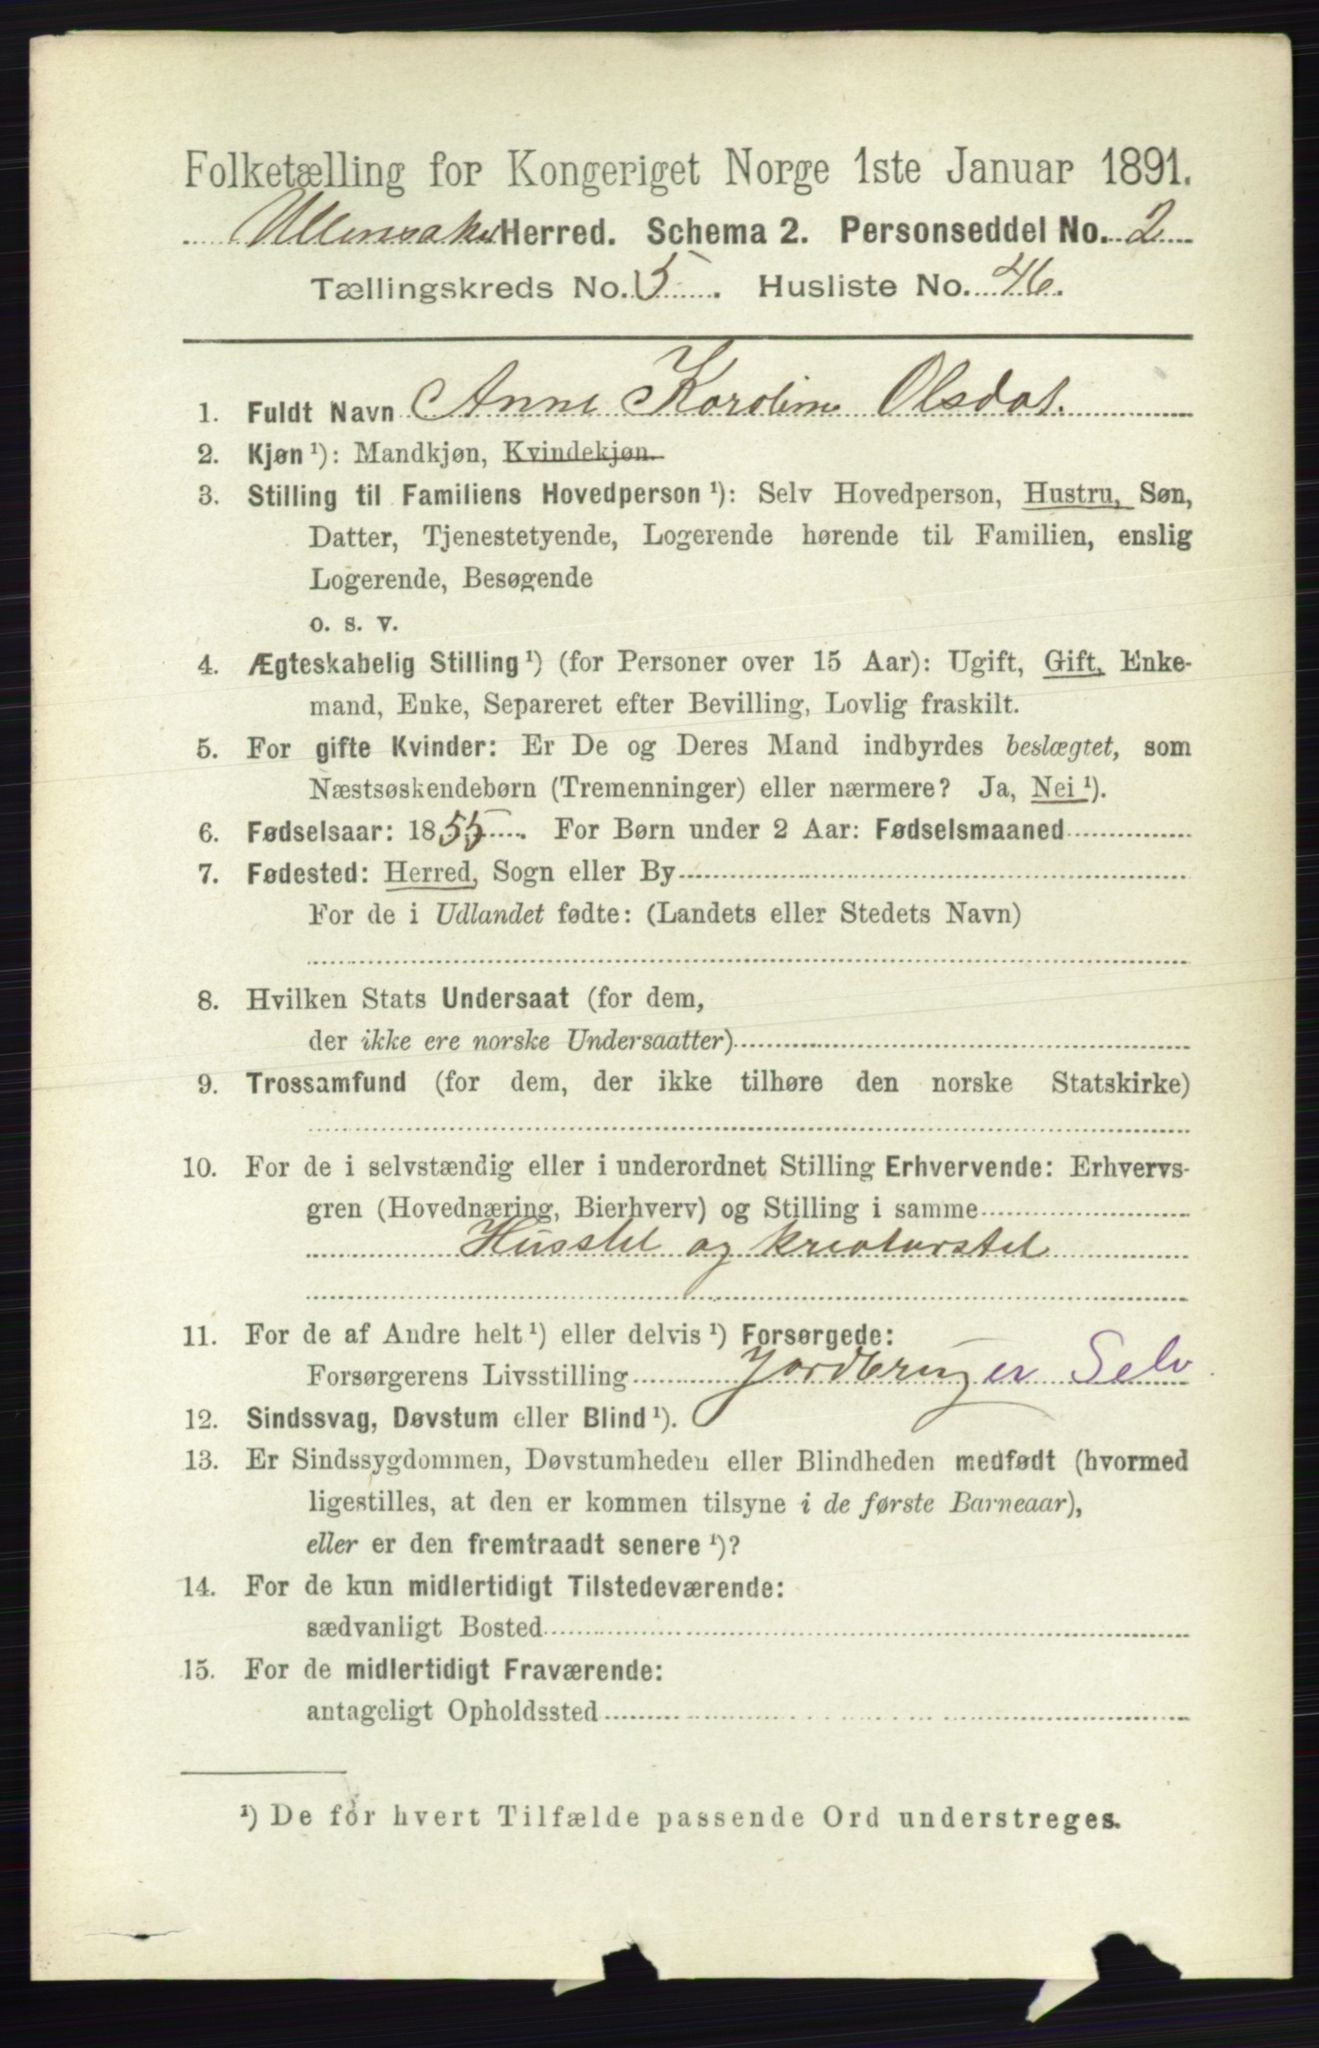 Folketælling for Kongeriget Norge 1ste Januar 1891.
Ullensaker Herred. Schema 2. Personseddel No. 2
Tællingskreds No. 5. Husliste No. 46.
1. Fuldt Navn Anne Karoline Olsdat.
2. Kjøn ¹): Mandkjøn, Kvindekjøn.
3. Stilling til Familiens Hovedperson ¹): Selv Hovedperson, Hustru, Søn,
Datter, Tjenestetyende, Logerende hørende til Familien, enslig
Logerende, Besøgende
o. s. v.
4. Ægteskabelig Stilling ¹) (for Personer over 15 Aar): Ugift, Gift, Enke-
mand, Enke, Separeret efter Bevilling, Lovlig fraskilt.
5. For gifte Kvinder: Er De og Deres Mand indbyrdes beslægtet, som
Næstsøskendebørn (Tremenninger) eller nærmere? Ja, Nei ¹).
6. Fødselsaar: 1855. For Børn under 2 Aar: Fødselsmaaned
7. Fødested: Herred, Sogn eller By
For de i Udlandet fødte: (Landets eller Stedets Navn)
8. Hvilken Stats Undersaat (for dem,
der ikke ere norske Undersaatter)
9. Trossamfund (for dem, der ikke tilhøre den norske Statskirke)
10. For de i selvstændig eller i underordnet Stilling Erhvervende: Erhvervs-
gren (Hovednæring, Bierhverv) og Stilling i samme
Husstel og kreaturstel
11. For de af Andre helt ¹) eller delvis ¹) Forsørgede:
Forsørgerens Livsstilling Jordbruger Selv
12. Sindssvag, Døvstum eller Blind ¹).
13. Er Sindssygdommen, Døvstumheden eller Blindheden medfødt (hvormed
ligestilles, at den er kommen tilsyne i de første Barneaar),
eller er den fremtraadt senere ¹)?
14. For de kun midlertidigt Tilstedeværende:
sædvanligt Bosted
15. For de midlertidigt Fraværende:
antageligt Opholdssted
¹) De for hvert Tilfælde passende Ord understreges.